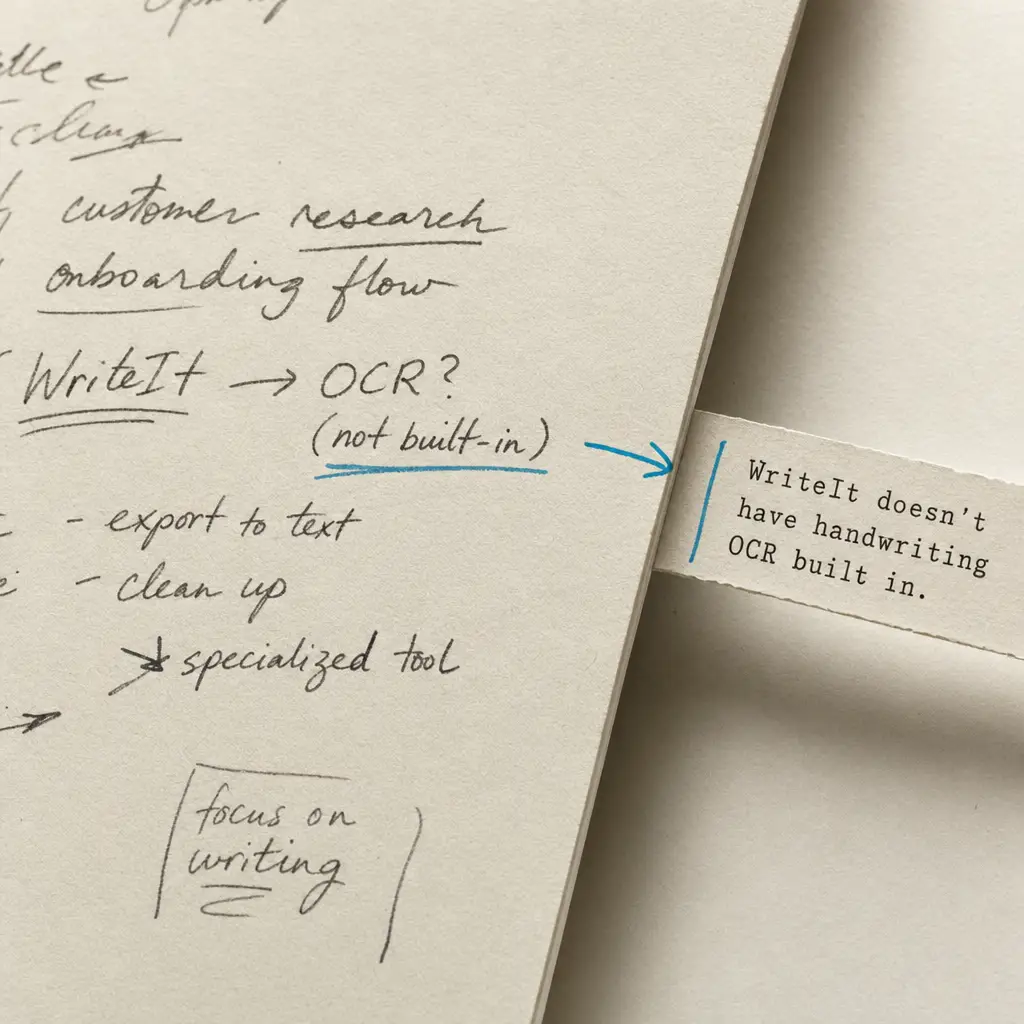 clean
customer research
onboarding flow
WriteIt → OCR?
(not built-in)
- export to text
- clean up
specialized tool
focus on
writing
WriteIt doesn't
have handwriting
OCR built in.